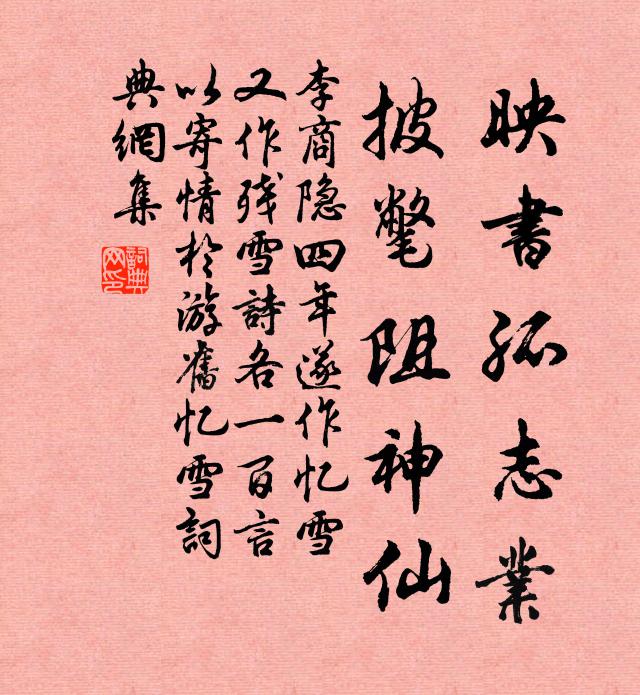 映書孤志業
披氅阻神仙
李商隐四年遂作忆雪
又作残雪詩各一百言
以寄情於游舊忆雪詞
典網集
詞典
网印